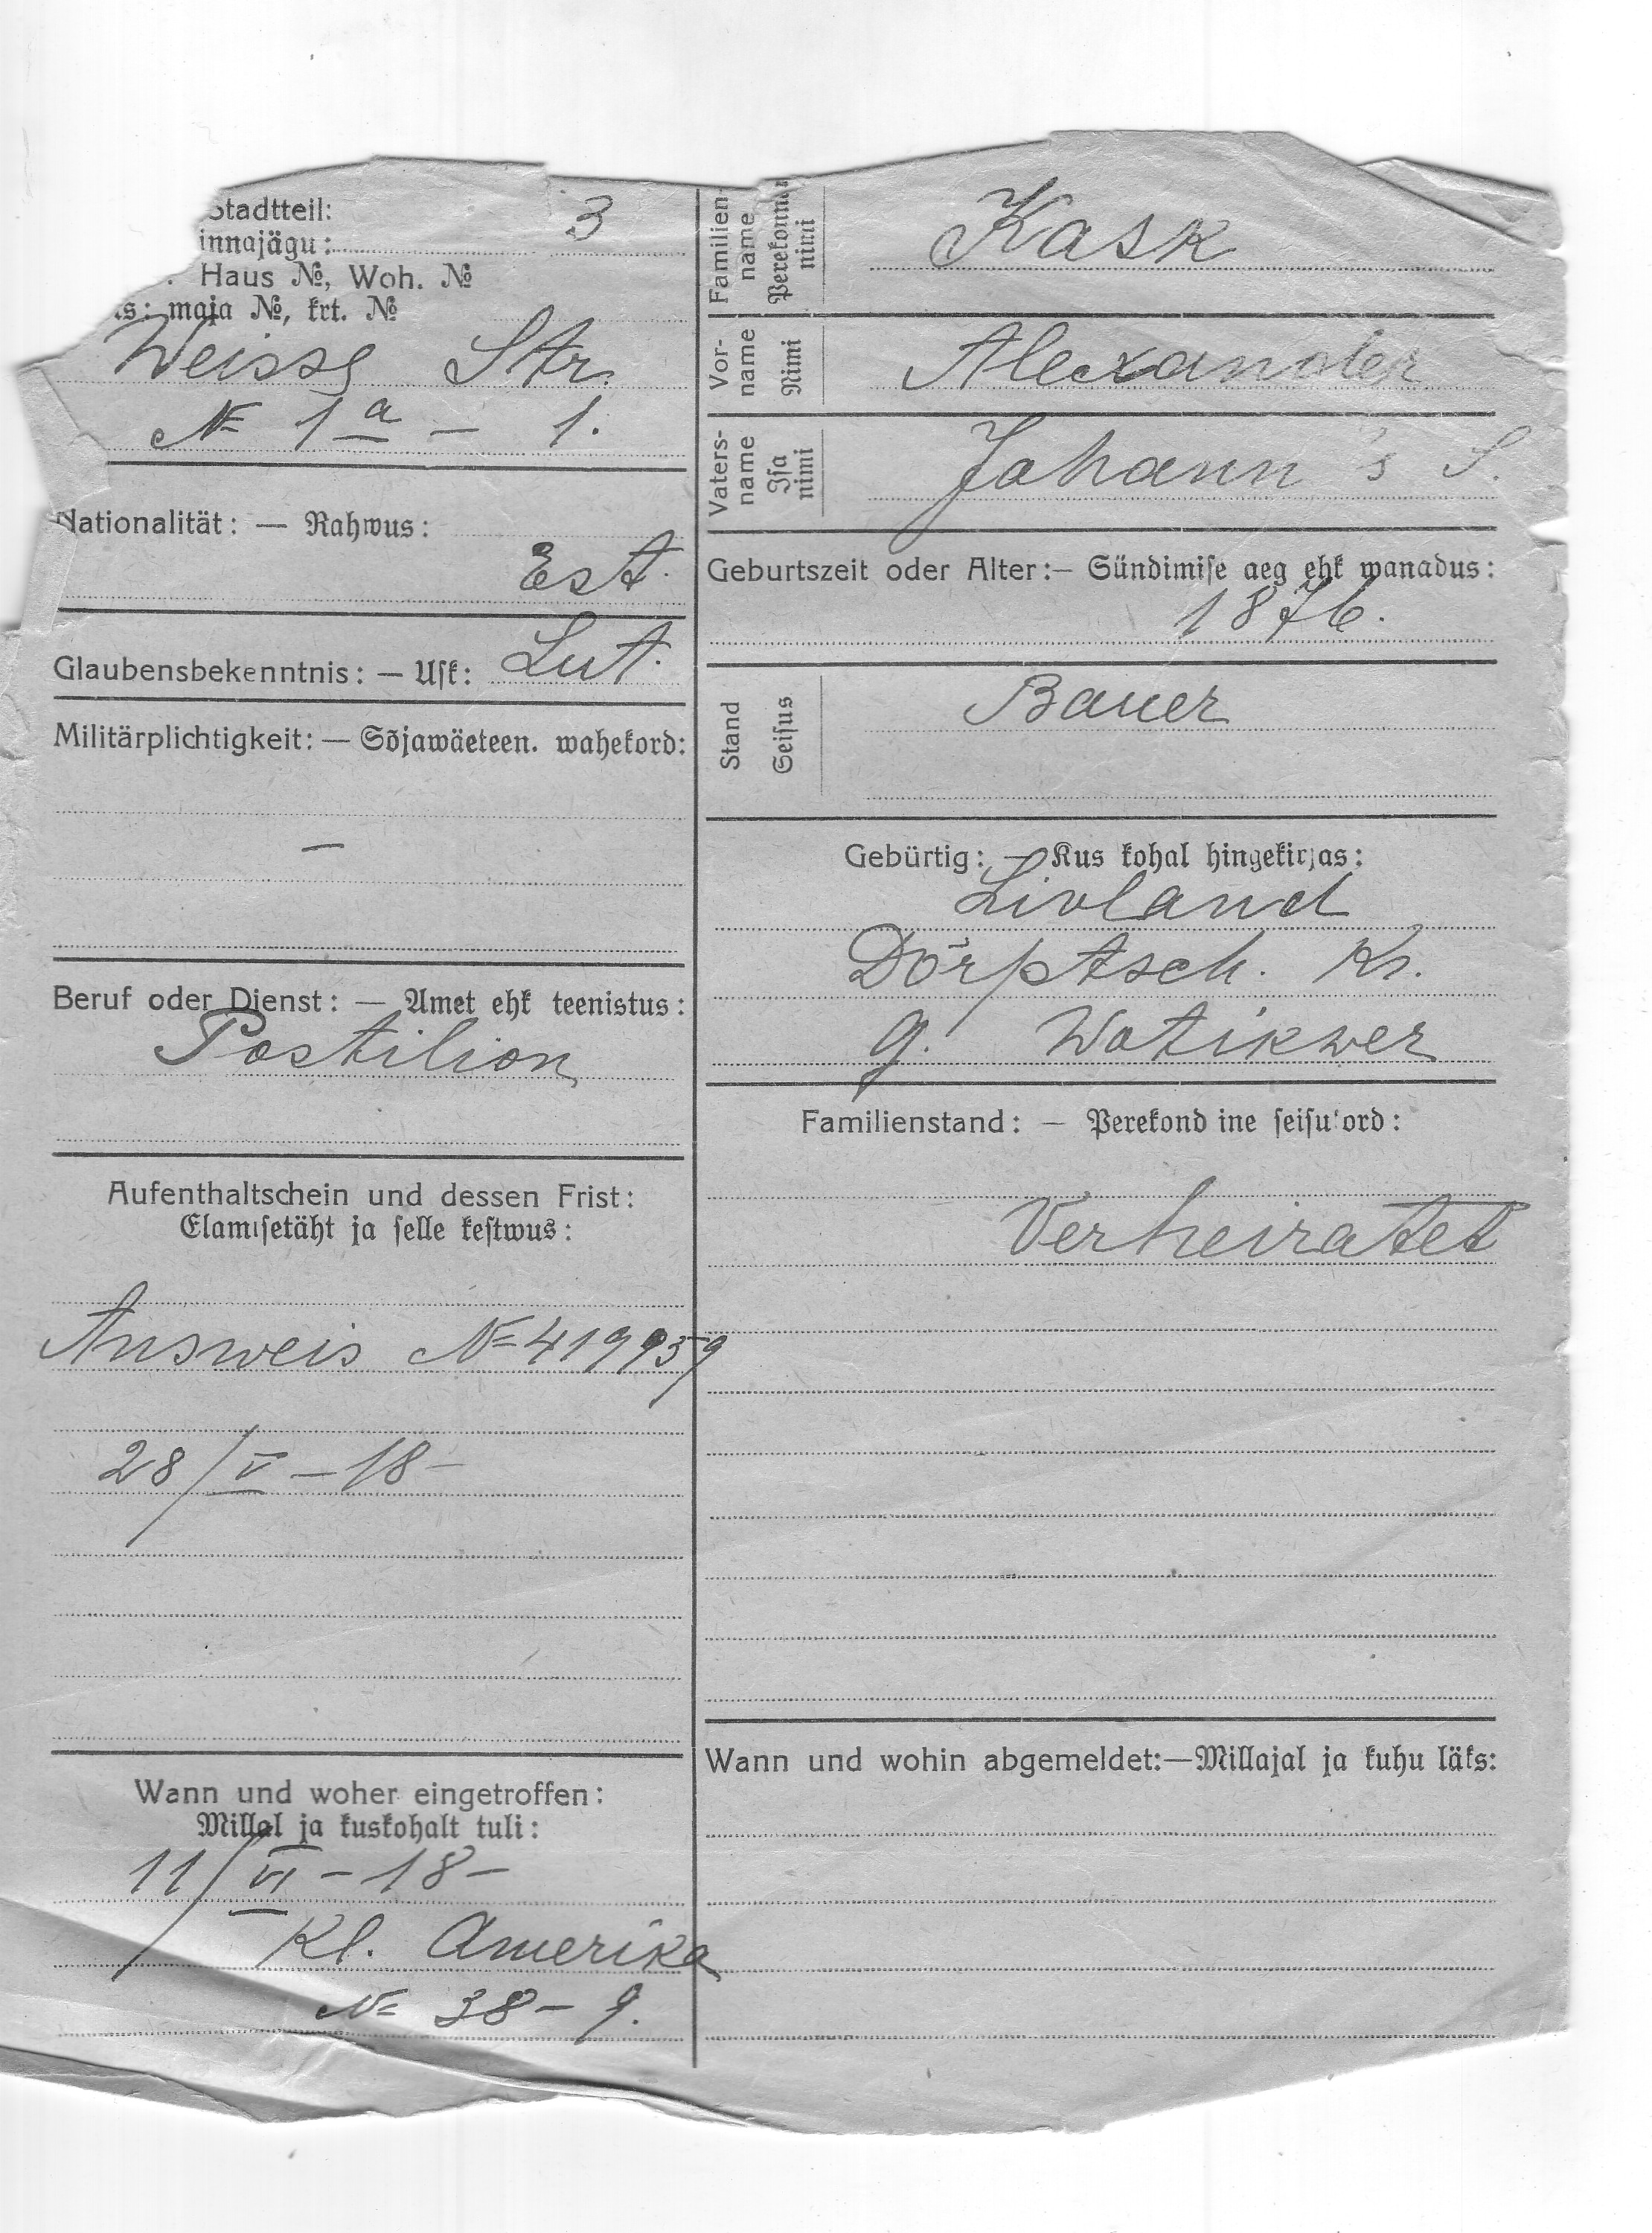 Stadtteil: 3
innajägu:
. Haus №, Woh. №
s: maja №, krt. №
Weisse Str.
№ 1a — 1.
Nationalität: — Rahwus:
Est.
Glaubensbekenntnis: — Usk: Lut.
Militärplichtigkeit: — Sõjawäeteen. wahekord:
—
Beruf oder Dienst: — Amet ehk teenistus:
Postilion
Aufenthaltschein und dessen Frist:
Elamisetäht ja selle kestwus:
Ausweis № 419959
28/V — 18 —
Wann und woher eingetroffen:
Millal ja kuskohalt tuli:
11/VI — 18 —
Kl. Amerika
№ 38 — 9.
Familien-
name
Perekonna
nimi
Kask
Vor-
name
Nimi
Alexander
Vaters-
name
Isa
nimi
Johann's S.
Geburtszeit oder Alter:— Sündimise aeg ehk wanadus:
1876.
Stand
Seisus
Bauer
Gebürtig: — Kus kohal hingekirjas:
Livland
Dörptsch. Kr.
g. Wotikwer
Familienstand: — Perekond ine seisu'ord:
Verheiratet
Wann und wohin abgemeldet:—Millajal ja kuhu läks: